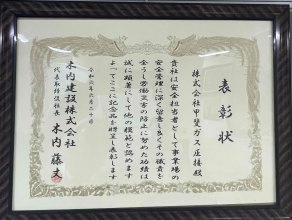 表彰状
株式会社甲斐ガス圧接殿
貴社は安全担当者として事業場の
安全管理に深く留意し良くその職責を
全うし労働災害の防止に努めた功績は
誠に顕著にして他の模範と認めます
よってここに記念品を贈呈し表彰します
令和六年六月二十日
木内建設株式会社
代表取締役社長 木内藤丈